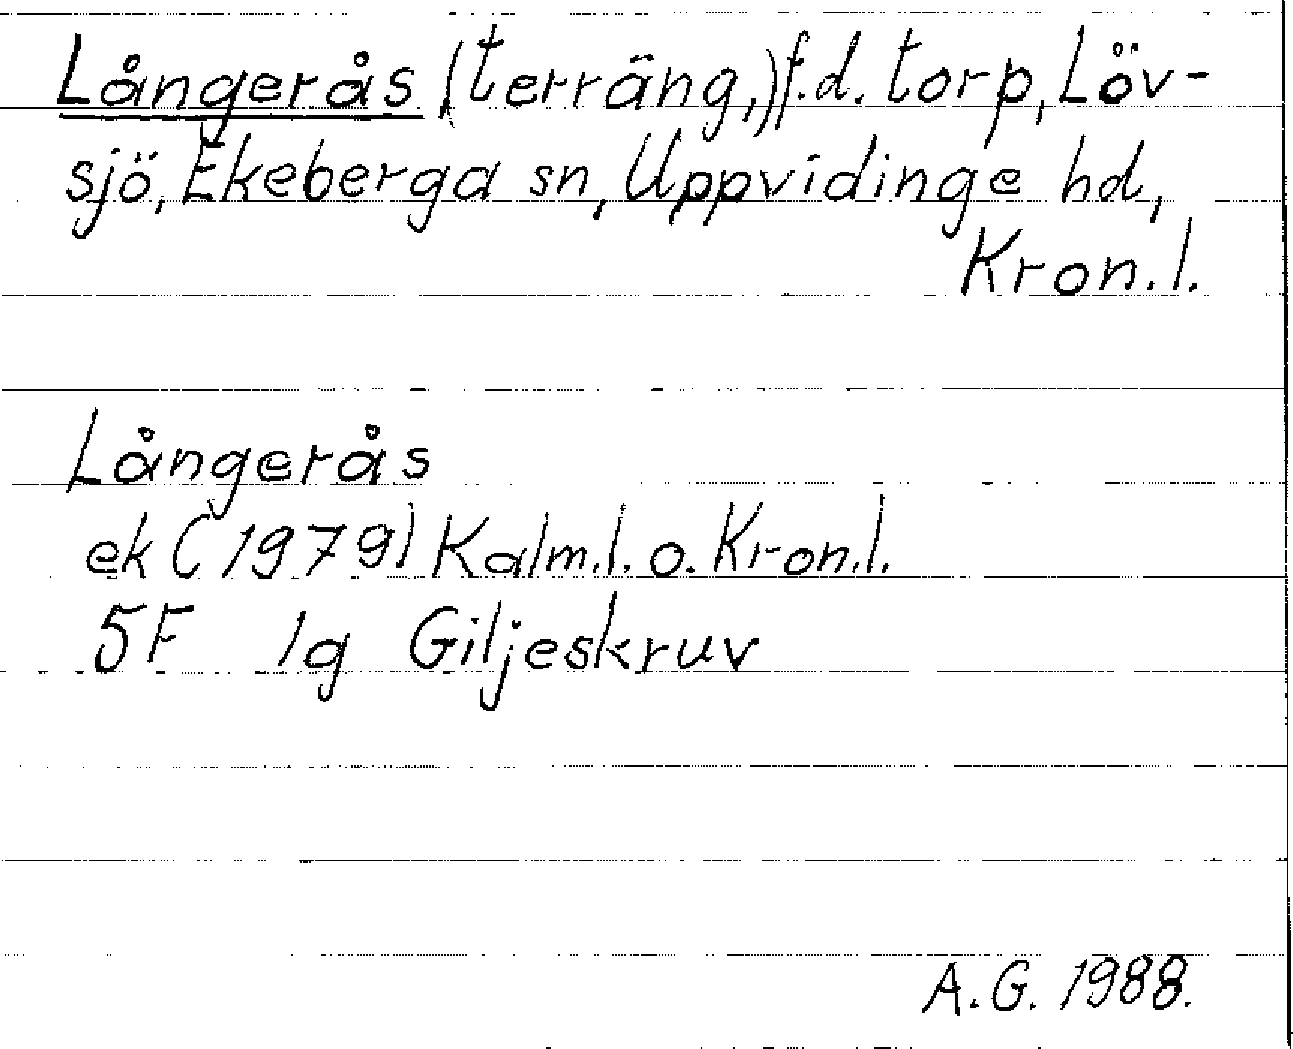 Långerås (terräng,) f.d. torp, Löv-
sjö, Ekeberga sn, Uppvidinge hd,
Kron.l.
Långerås
ek (1979) Kalm.l. o. Kron.l.
5F 1g Giljeskruv
A.G. 1988.